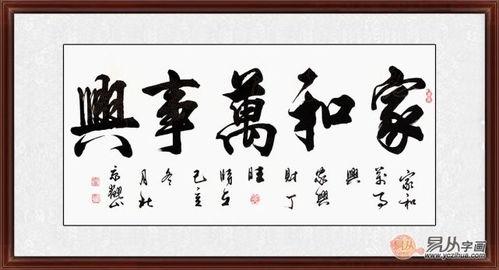 家和萬事興
家和
萬事
興
家興
財丁
旺
時在
己亥
冬
月於
易从字画
www.yczihua.com